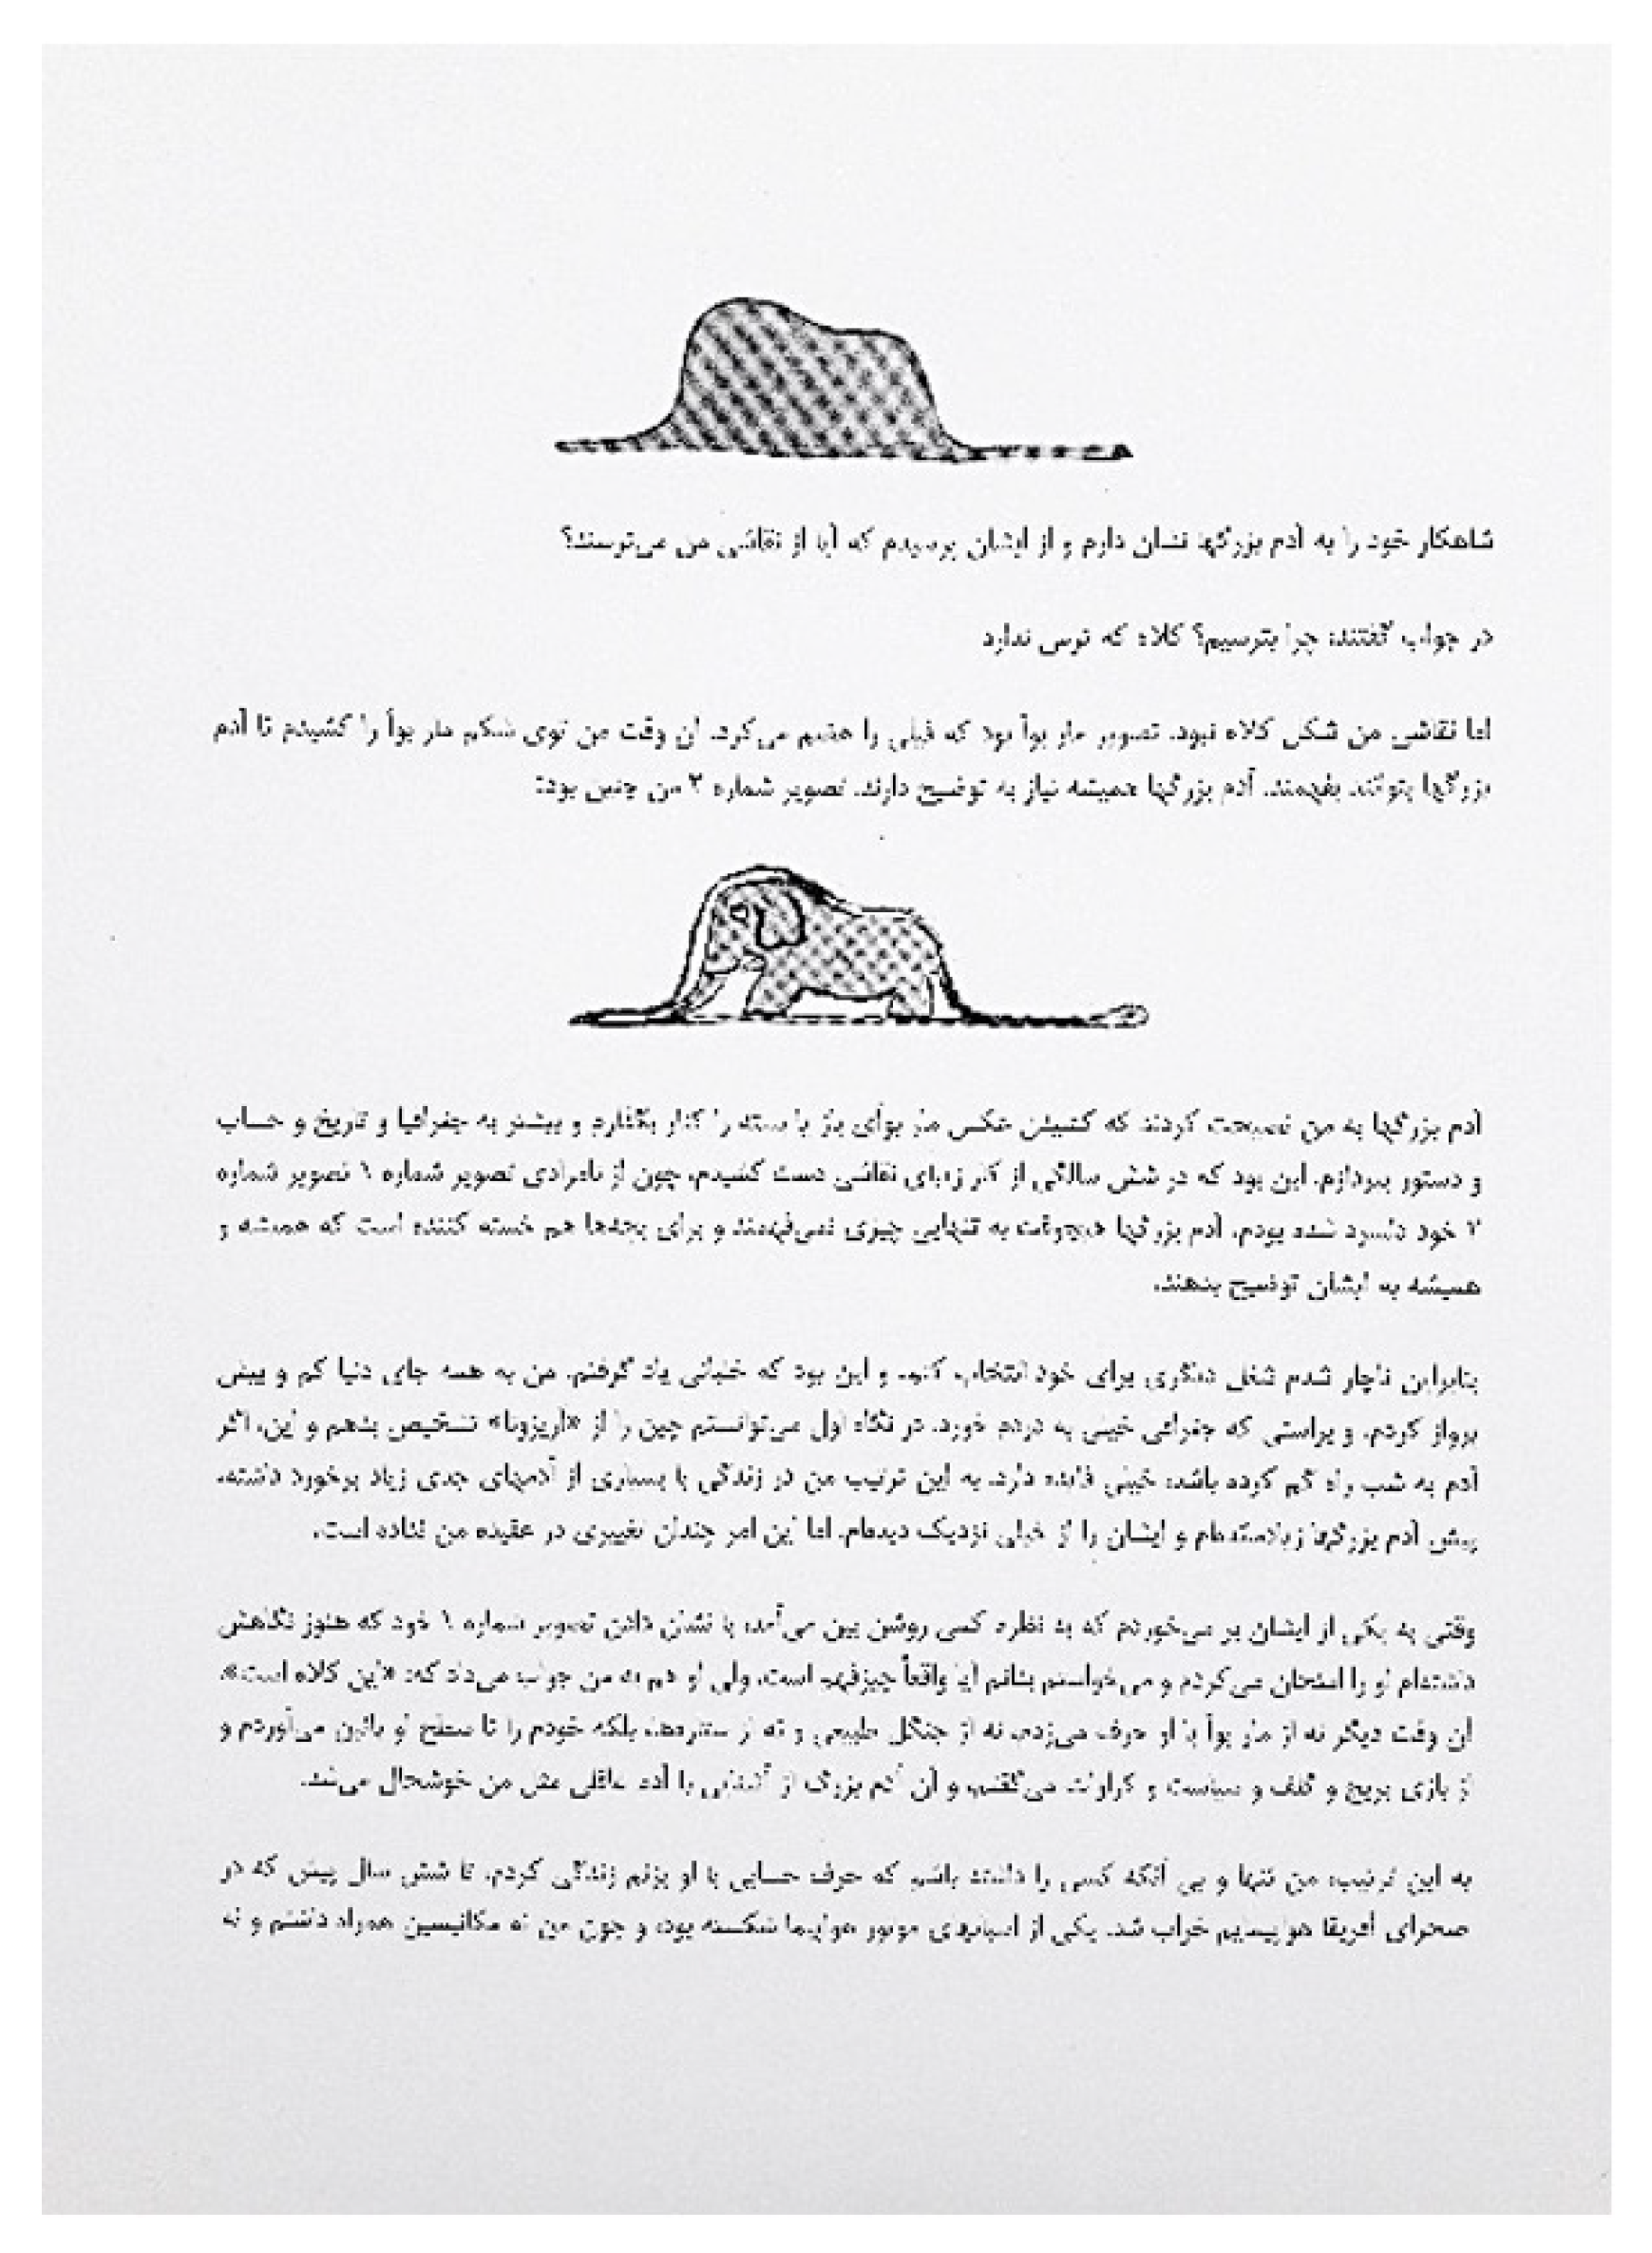 شاهکار خود را به آدم بزرگها نشان دارم و از ایشان پرسیدم که آیا از نقاشی من می‌ترسند؟
در جواب گفتند: چرا بترسیم؟ کلاه که ترس ندارد
اما نقاشی من شکل کلاه نبود. تصویر مار بوآ بود که فیلی را هضم می‌کرد. آن وقت من توی شکم مار بوآ را کشیدم تا آدم
بزرگها بتوانند بفهمند. آدم بزرگها همیشه نیاز به توضیح دارند. تصویر شماره ۲ من چنین بود:
آدم بزرگها به من نصیحت کردند که کشیدن عکس مار بوآی باز یا بسته را کنار بگذارم و بیشتر به جغرافیا و تاریخ و حساب
و دستور بپردازم. این بود که در شش سالگی از کار زیبای نقاشی دست کشیدم، چون از نامرادی تصویر شماره ۱ تصویر شماره
۲ خود دلسرد شده بودم. آدم بزرگها هیچوقت به تنهایی چیزی نمی‌فهمند و برای بچه‌ها هم خسته کننده است که همیشه و
همیشه به ایشان توضیح بدهند.
بنابراین ناچار شدم شغل دیگری برای خود انتخاب کنم و این بود که خلبانی یاد گرفتم. من به همه جای دنیا کم و بیش
پرواز کردم، و براستی که جغرافی خیلی به دردم خورد. در نگاه اول می‌توانستم چین را از «آریزونا» تشخیص بدهم و این، اگر
آدم به شب راه گم کرده باشد، خیلی فایده دارد. به این ترتیب من در زندگی با بسیاری از آدمهای جدی زیاد برخورد داشته،
پیش آدم بزرگها زیادسته‌ام و ایشان را از خیلی نزدیک دیده‌ام. اما این امر چندان تغییری در عقیده من نداده است.
وقتی به یکی از ایشان بر می‌خوردم که به نظرم کسی روشن بین می‌آمد، با نشان دادن تصویر شماره ۱ خود که هنوز نگاهش
داشته‌ام او را امتحان می‌کردم و می‌خواستم بدانم آیا واقعاً چیزفهم است، ولی او هم به من جواب می‌داد که: «این کلاه است».
آن وقت دیگر نه از مار بوآ با او حرف می‌زدم، نه از جنگل طبیعی و نه از ستاره‌ها، بلکه خودم را تا سطح او پائین می‌آوردم و
از بازی بریج و گلف و سیاست و کراوات می‌گفتم، و آن آدم بزرگ از آشنایی با آدم عاقلی مثل من خوشحال می‌شد.
به این ترتیب، من تنها و بی آنکه کسی را داشته باشم که حرف حسابی با او بزنم زندگی کردم، تا شش سال پیش که در
صحرای آفریقا هواپیمایم خراب شد. یکی از اسبابهای موتور هواپیما شکسته بود، و چون من نه مکانیسین همراه داشتم و نه